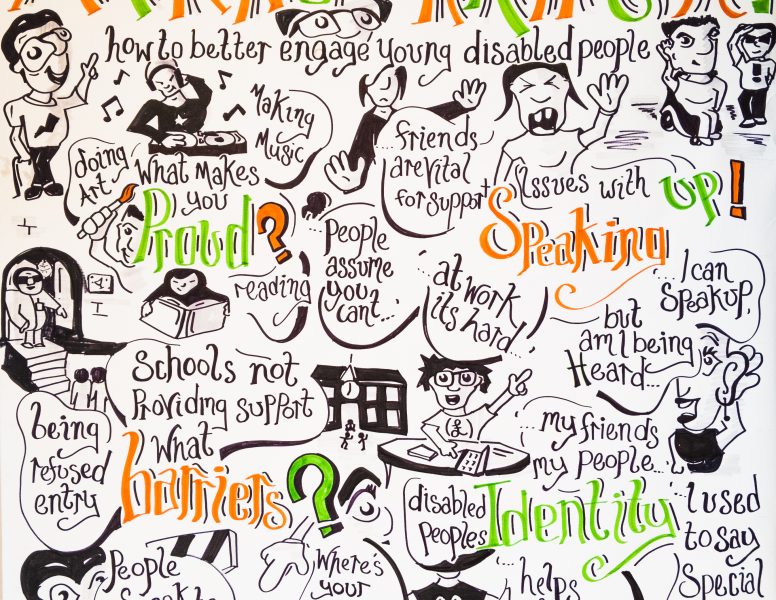 how to better engage young disabled people
Making
Music
doing
Art
What makes
you
Proud?
reading
...friends
are vital
for support
Issues with
Speaking up!
People
assume
you
can't...
at work
its hard...
...I can
Speak up,
but
am I being
Heard...
Schools not
Providing support
being
refused
entry
What
barriers?
...my friends
my people...
disabled
peoples
Identity
...I used
to say
Special
People
Where's
your
helps